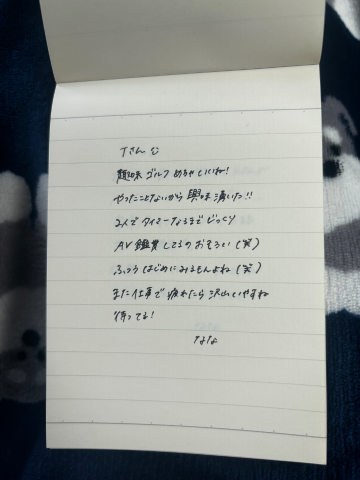 Tさん♡
趣味ゴルフめちゃいいね!
やったことないから興味湧いた!!
2人でタイマーなるまでじっくり
AV鑑賞してるのおもろい(笑)
ふつうはじめにみるもんよね(笑)
また仕事で疲れたら沢山いやすね
待ってる!
なな